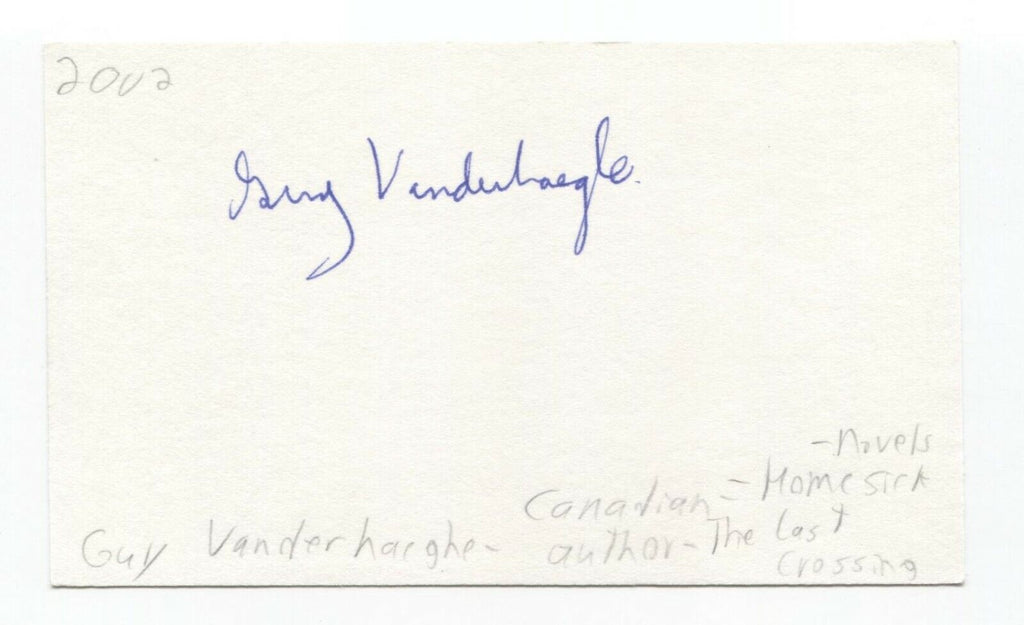 2002
Guy Vanderhaeghe
- Novels
Canadian = Homesick
Guy Vanderhaeghe - author - The Last
Crossing